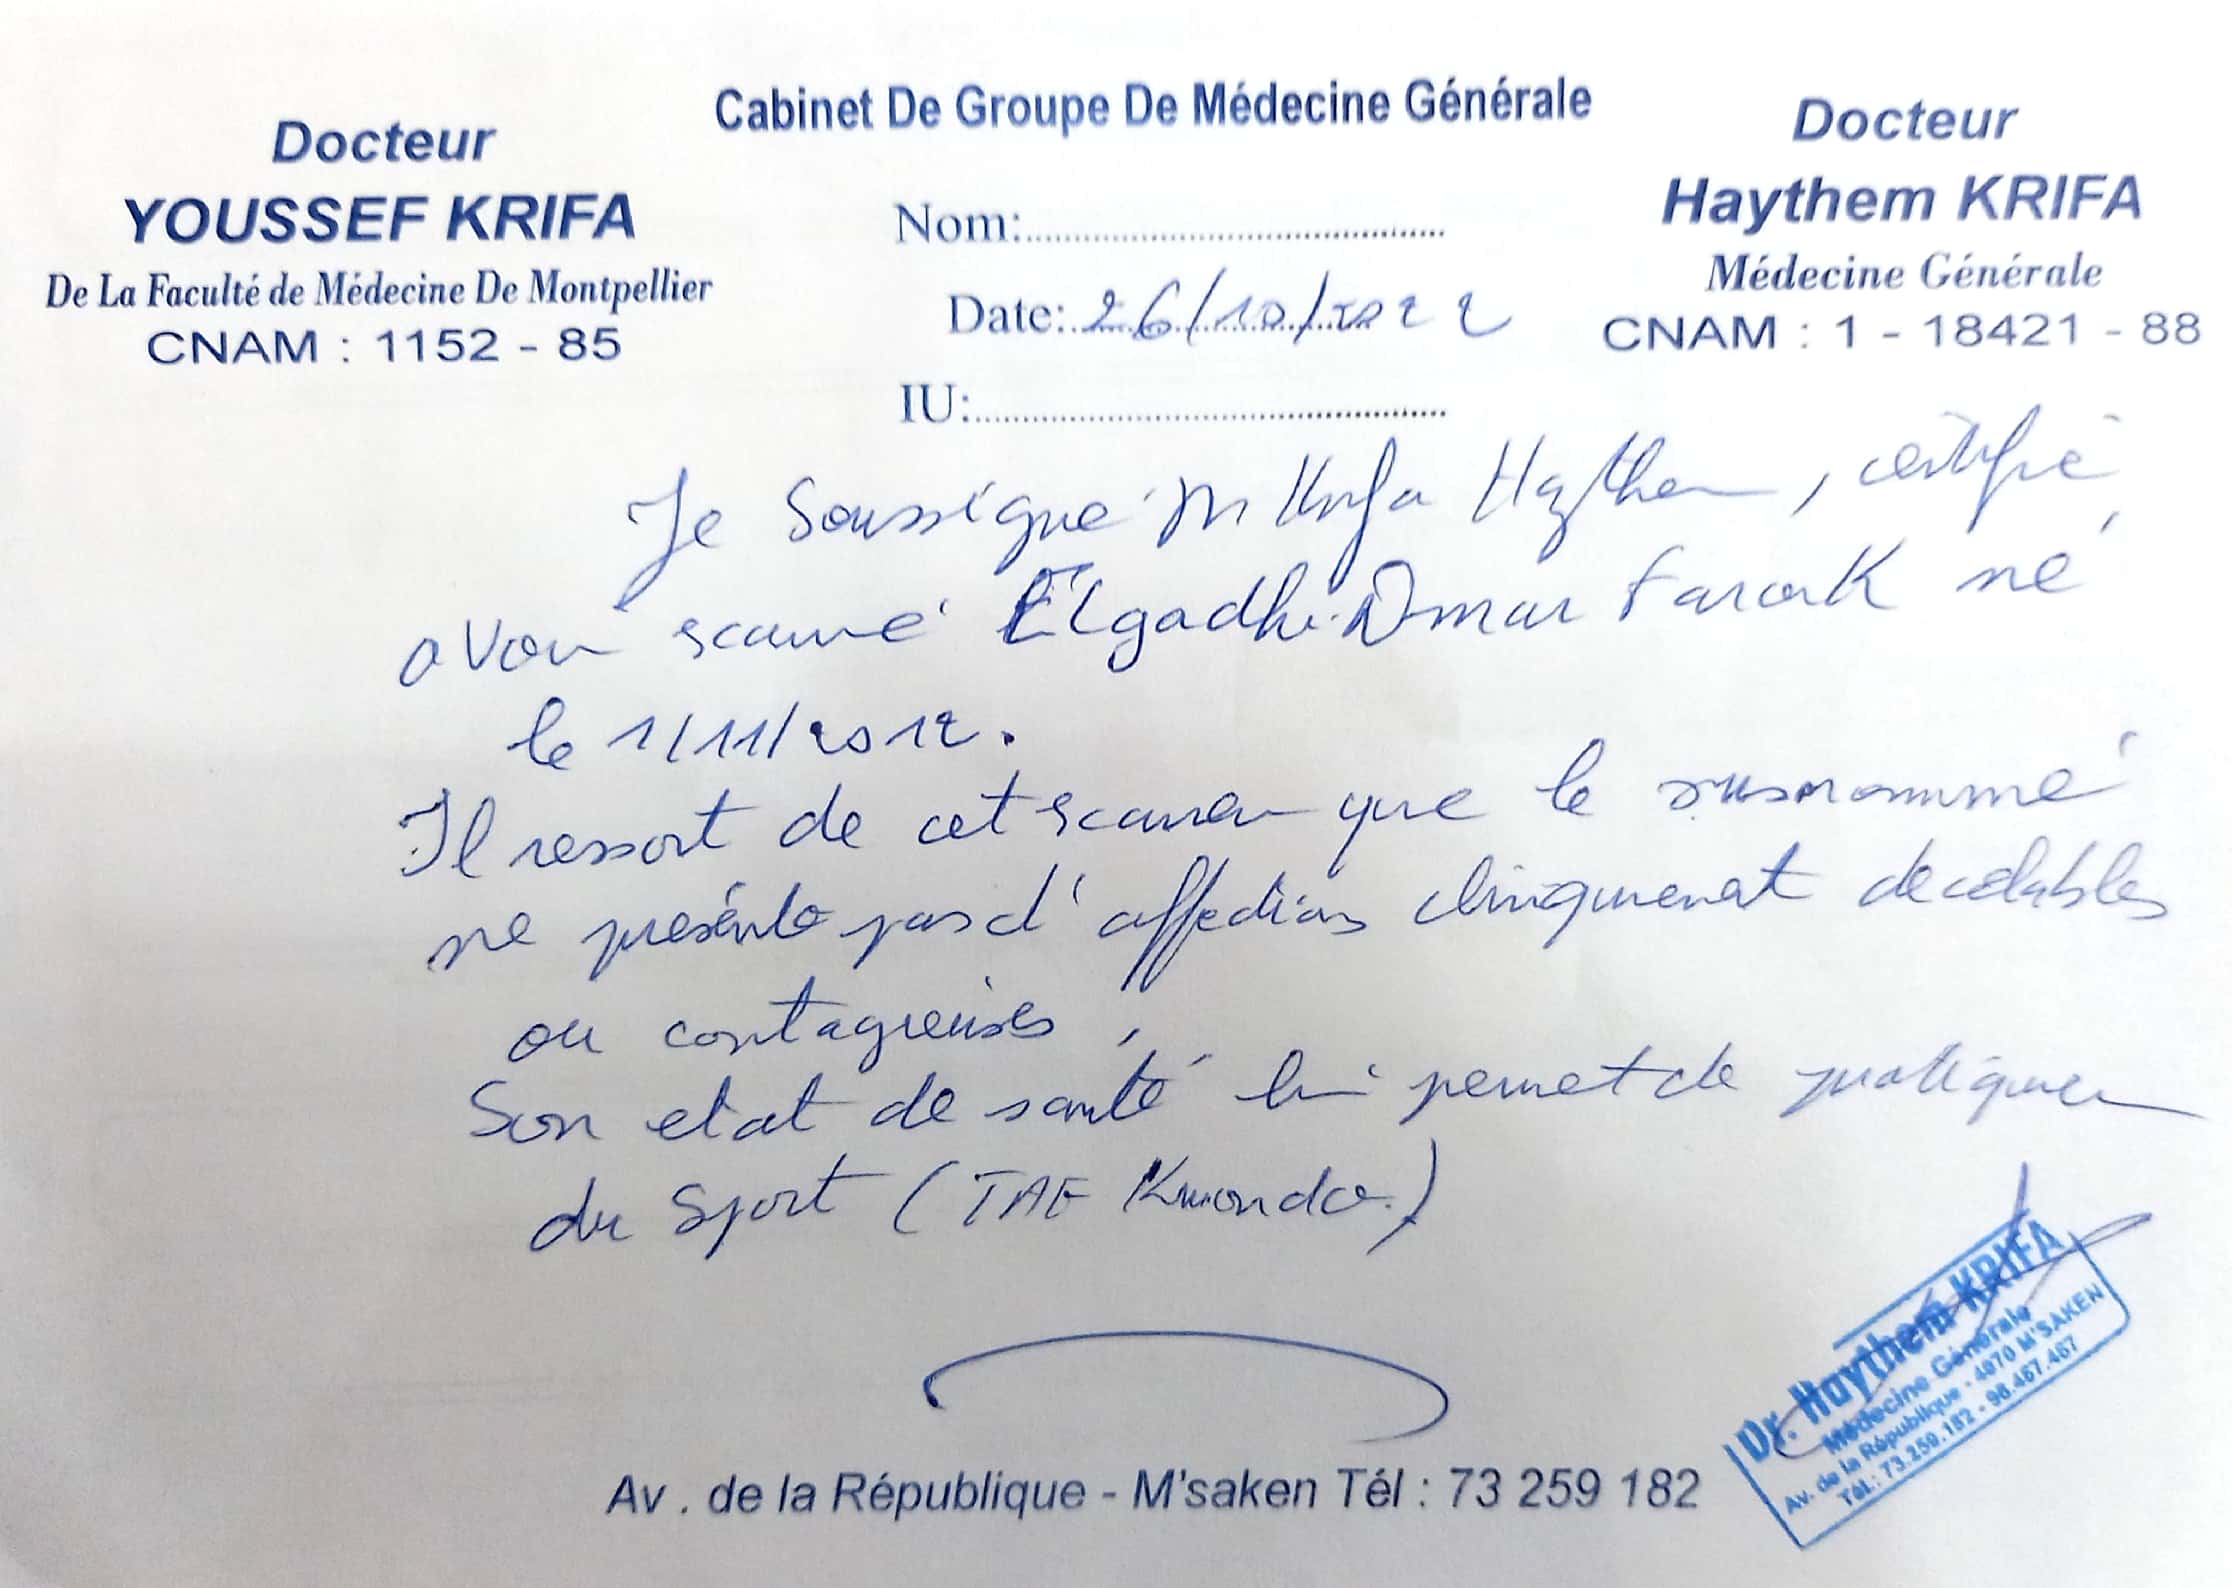 Cabinet De Groupe De Médecine Générale
Docteur
YOUSSEF KRIFA
De La Faculté de Médecine De Montpellier
CNAM : 1152 - 85
Docteur
Haythem KRIFA
Médecine Générale
CNAM : 1 - 18421 - 88
Nom:
Date: 26/10/2022
IU:
Je Soussigné Krifa Haythem, certifie
avoir Elgadhi Omar Farouk né
le 1/11/2012.
Il ressort de cet que le susnommé
ne présente pas d'affections decelables
ou contagieuses,
Son etat de santé lui permet de pratiquer
du sport (TAE Kwondo.)
Dr. Haythem KRIFA
Médecine Générale
Av. de la République - 4070 M'SAKEN
Tél.: 73.259.182 - 98.467.467
Av . de la République - M'saken Tél : 73 259 182